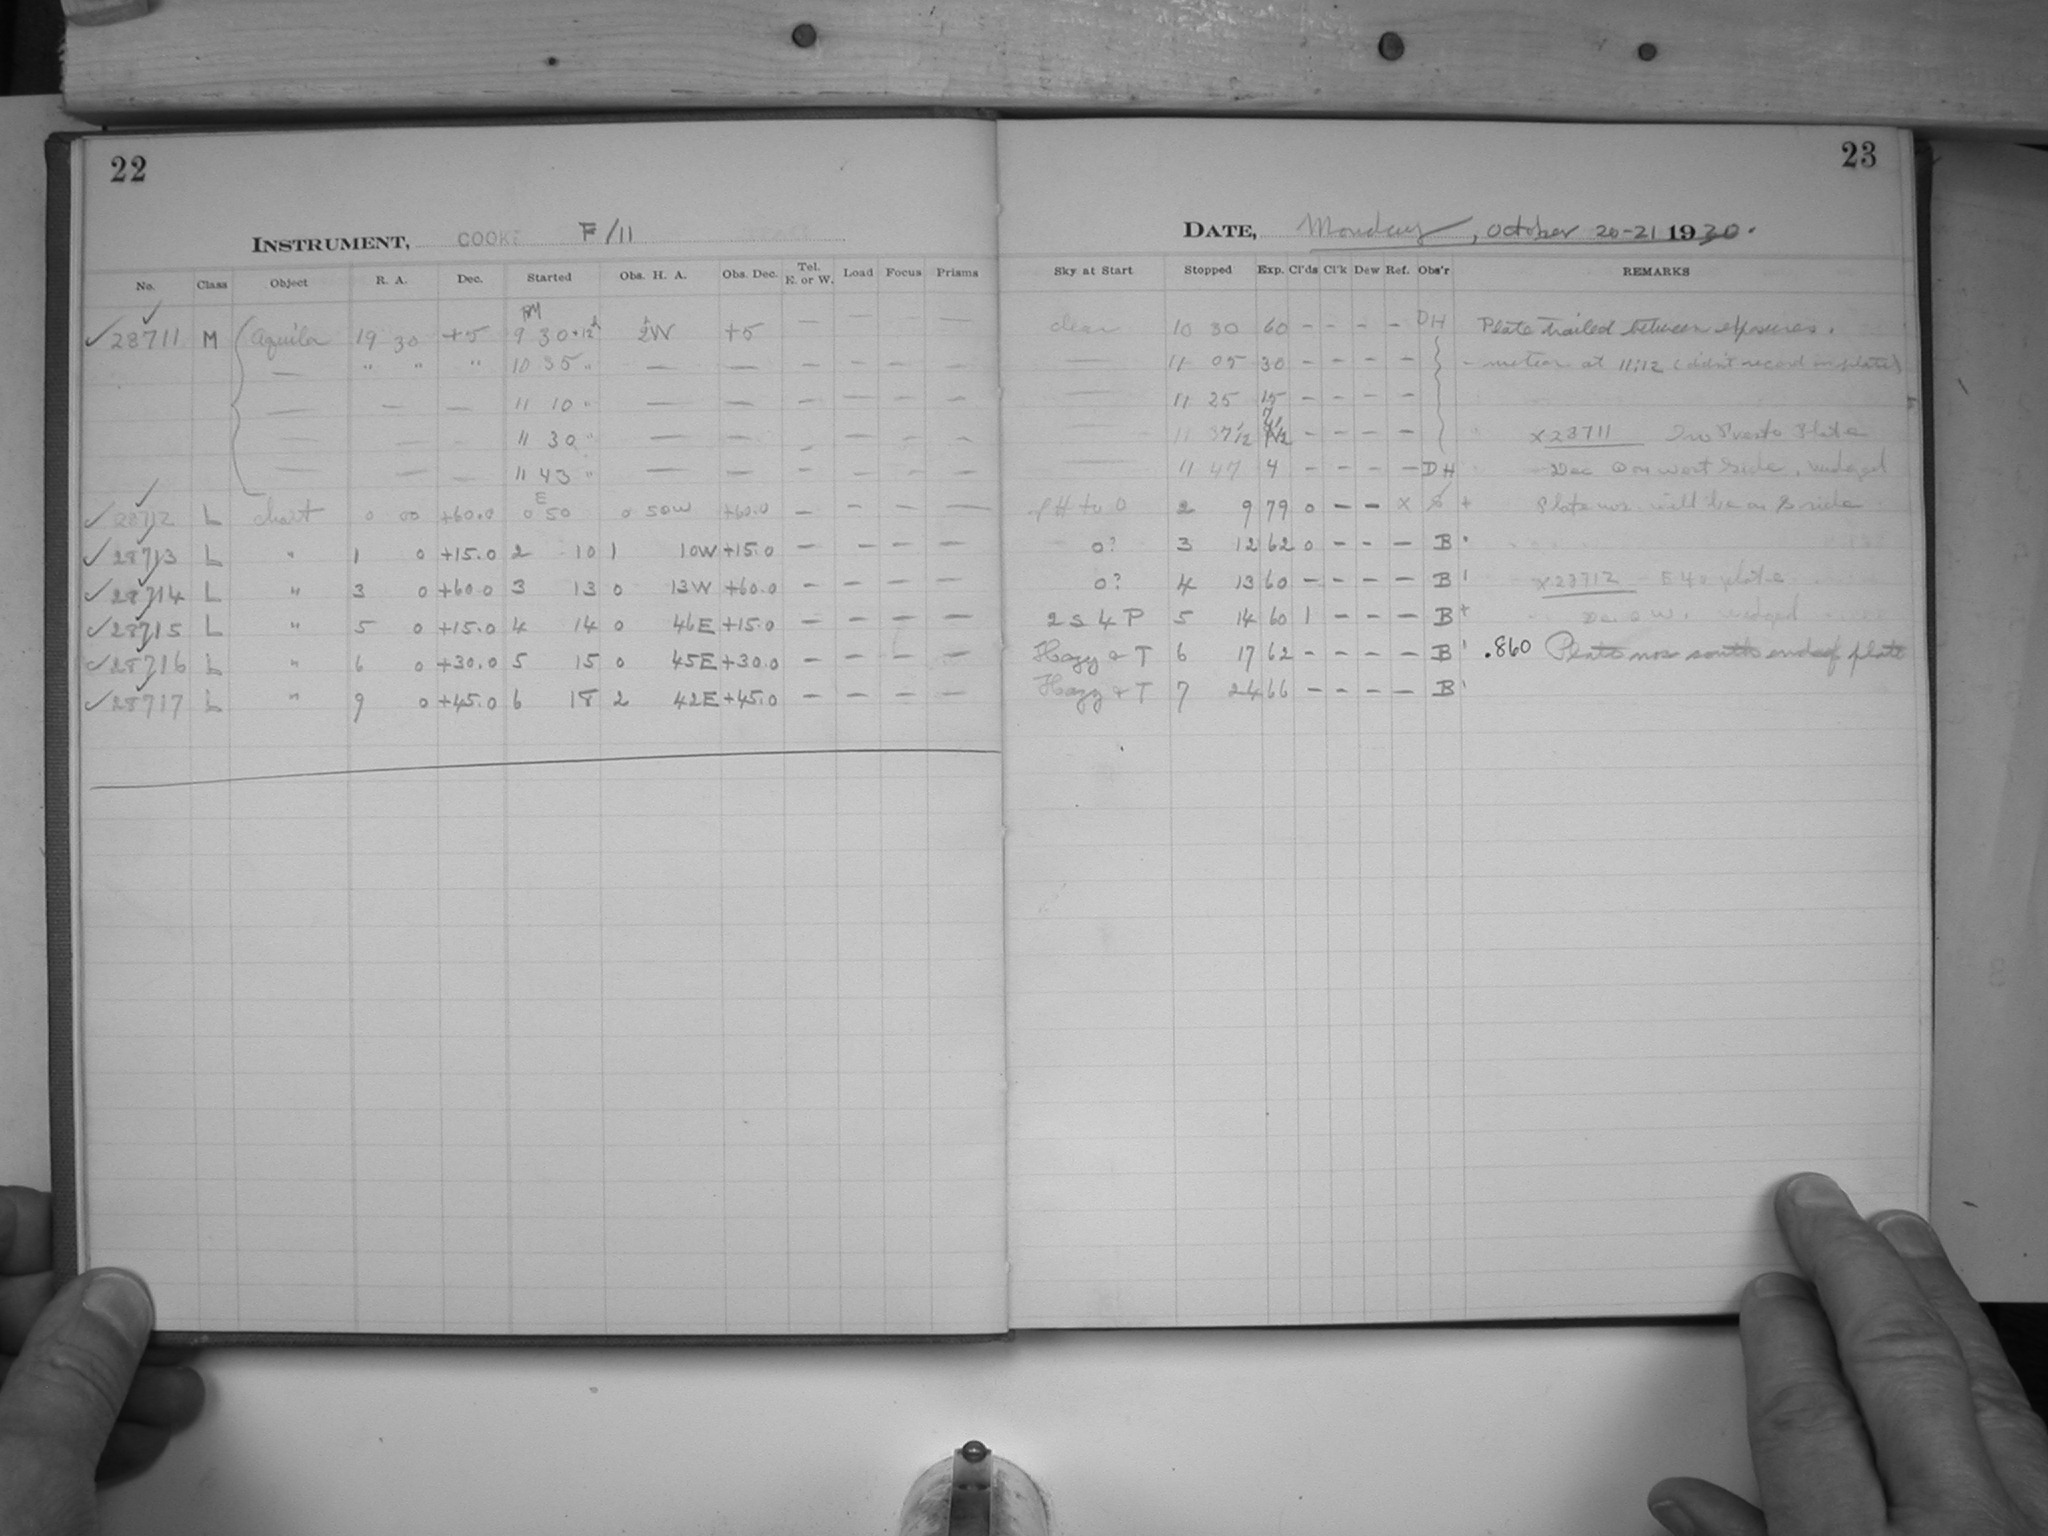 22
INSTRUMENT, COOKE F/11
No. Class Object R. A. Dec. Started Obs. H. A. Obs. Dec. Tel. E. or W. Load Focus Prisms
PM
✓28711 M Aquila 19 30 +5 9 30+12h ½W +5 — — — —
— " " " 10 35 " — — — — — —
— — — 11 10 " — — — — — —
11 30 " — — — — — —
— — — 11 43 " — — — — — —
E
✓28712 L chart 0 00 +60.0 0 50 0 50W +60.0 — — — —
✓28713 L " 1 0 +15.0 2 10 1 10W +15.0 — — — —
✓28714 L " 3 0 +60.0 3 13 0 13W +60.0 — — — —
✓28715 L " 5 0 +15.0 4 14 0 46E +15.0 — — — —
✓28716 L " 6 0 +30.0 5 15 0 45E +30.0 — — — —
✓28717 L " 9 0 +45.0 6 18 2 42E +45.0 — — — —
23
DATE, Monday, October 20-21 1930.
Sky at Start Stopped Exp. Cl'ds Cl'k Dew Ref. Obs'r REMARKS
clear 10 30 60 - - - - DH Plate trailed between exposures.
— 11 05 30 - - - - - meteor at 11:12 (didn't record on plate)
— 11 25 15 - - - -
— 11 37½ 7½ - - - - x28711 Plate
— 11 47 4 - - - - DH Dec on west side, nudged
to 0 2 9 79 0 - - x S + Plate nos. will be on S side
0? 3 12 62 0 - - - B
0? 4 13 60 - - - - B x28712 - E 40 plate
2 S 4 P 5 14 60 1 - - - B+ W. nudged
Hazy & T 6 17 62 - - - - B .860 Plate nos south end of plate
Hazy & T 7 24 66 - - - - B